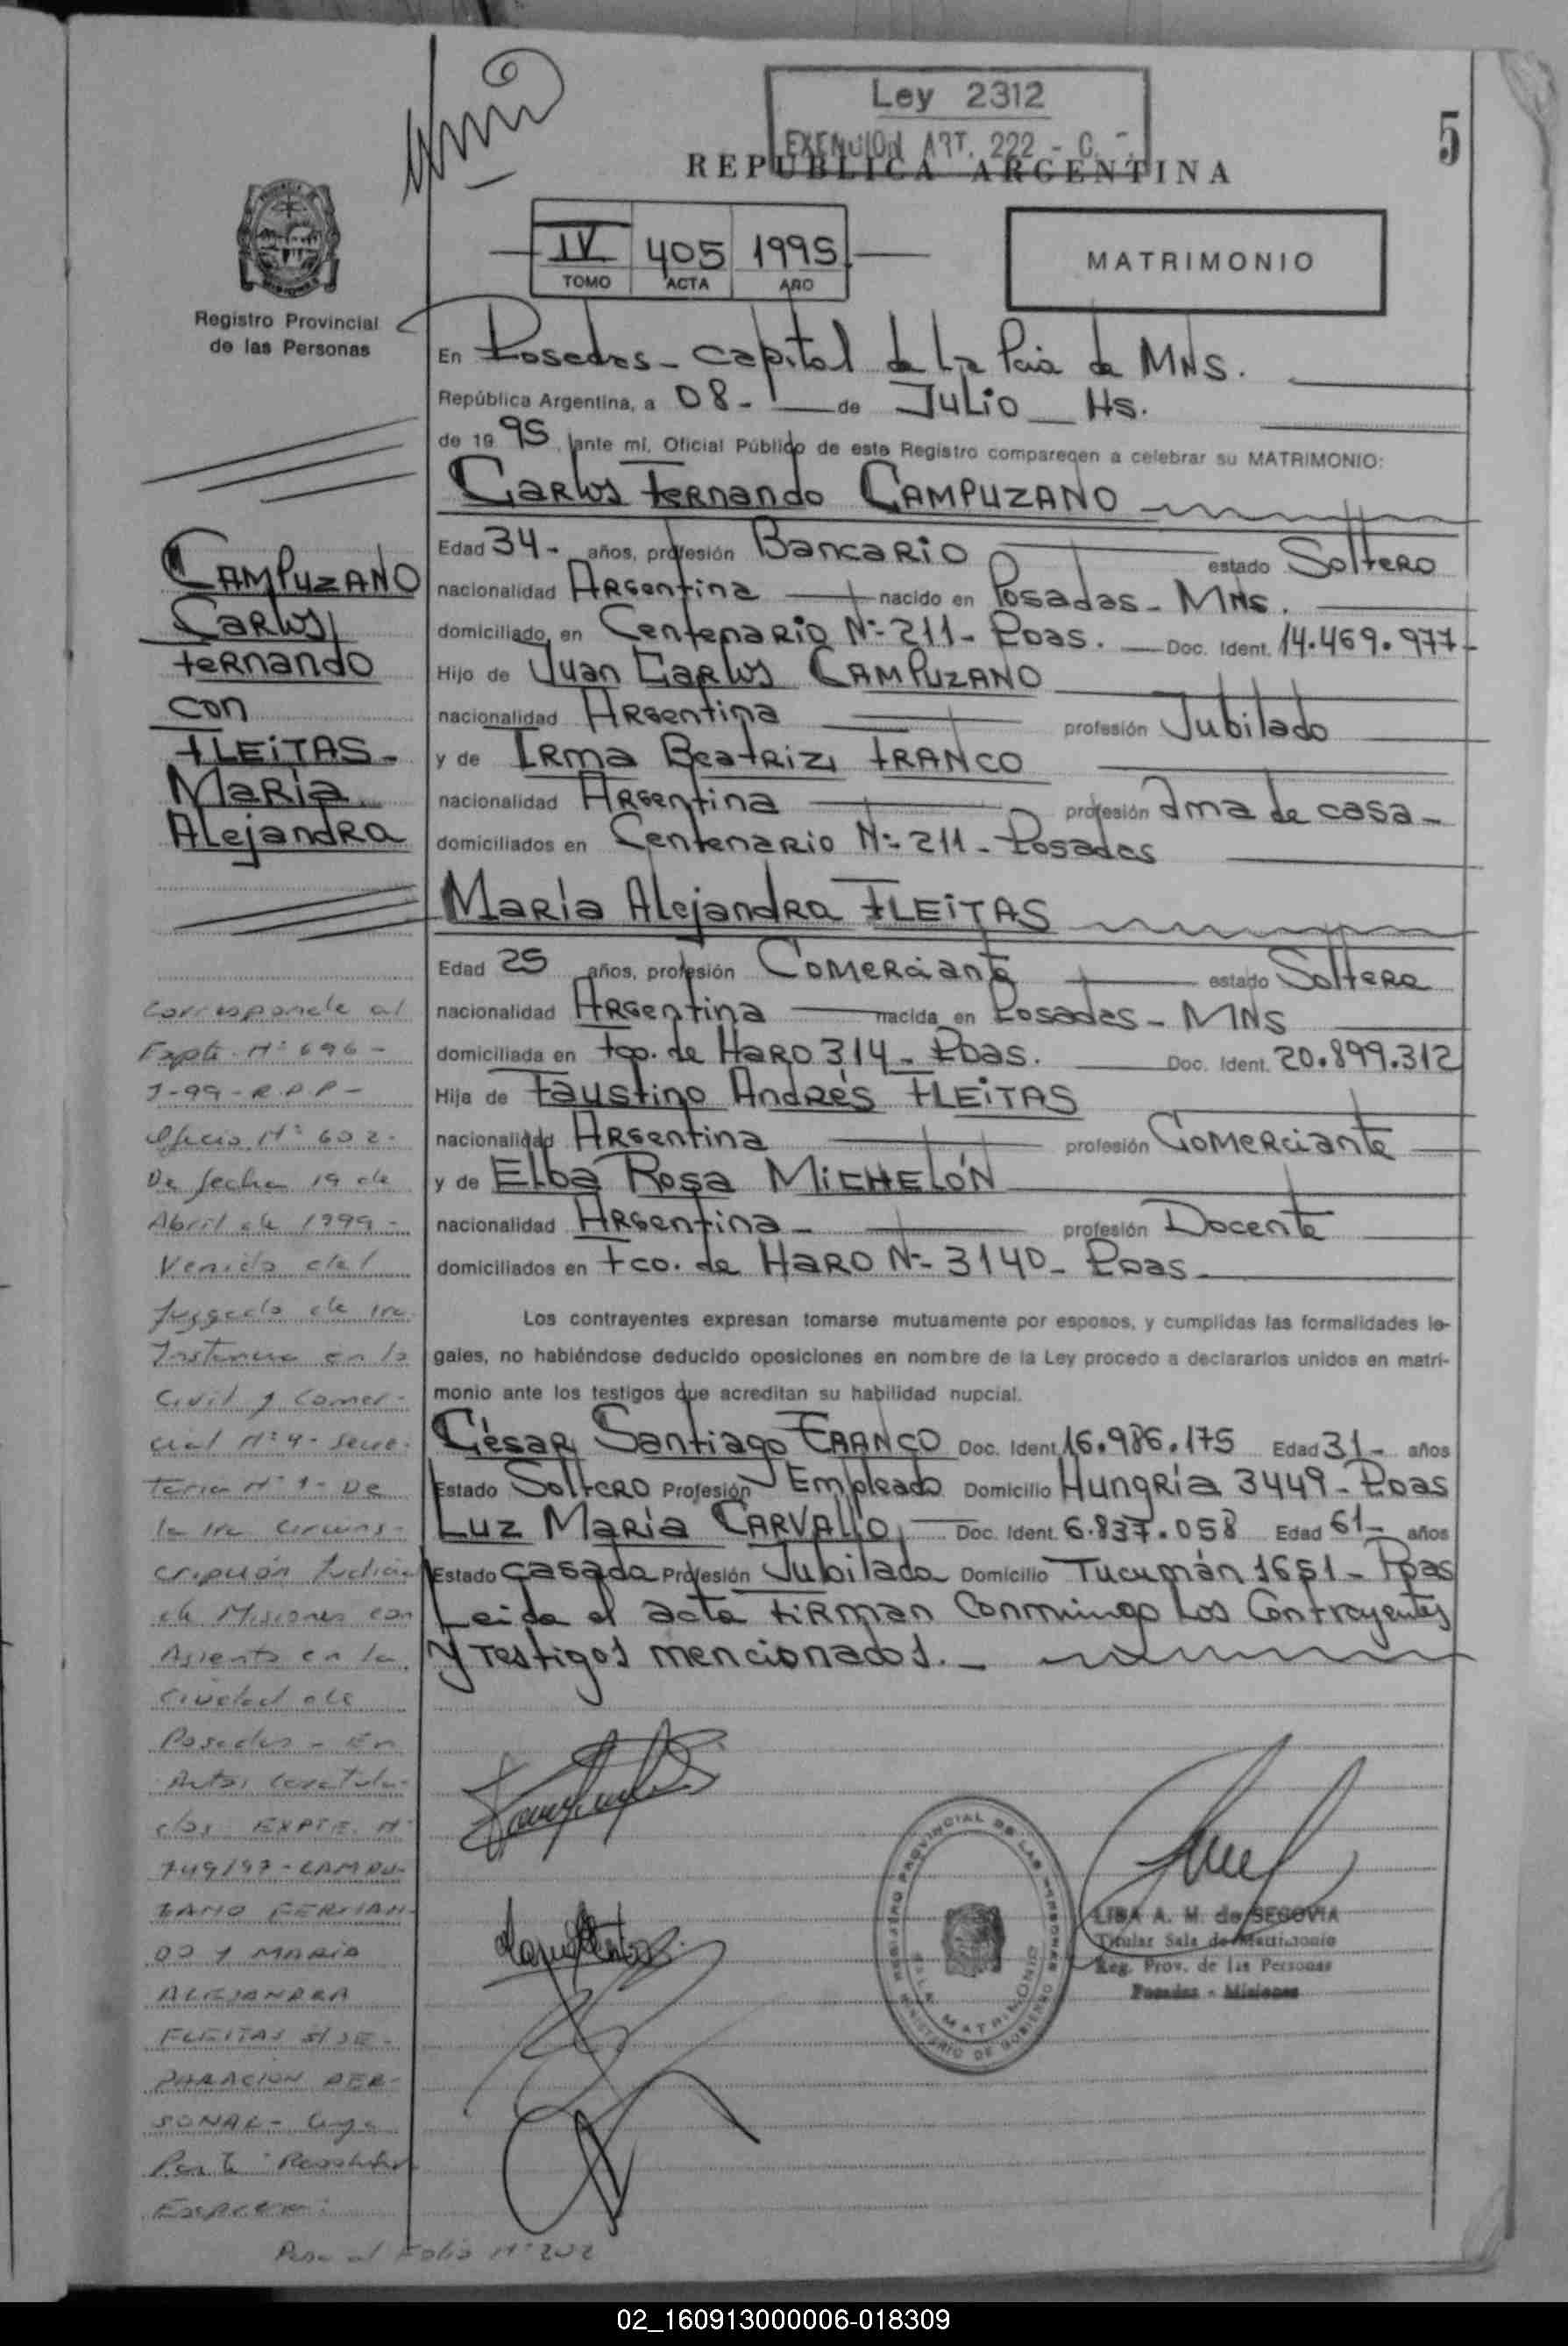 Ley 2312
EXENCION ART. 222 - C.
REPUBLICA ARGENTINA
5
IV 405 1995
TOMO ACTA AÑO
MATRIMONIO
Registro Provincial
de las Personas
En Posadas - capital de la Pcia de MNS.
República Argentina, a 08 - de Julio Hs.
de 19 95, ante mí, Oficial Público de este Registro comparecen a celebrar su MATRIMONIO:
Carlos Fernando CAMPUZANO
Edad 34 - años, profesión Bancario estado Soltero
nacionalidad Argentina nacido en Posadas - MNS.
domiciliado en Centenario Nº 211 - Pdas. Doc. Ident. 14.469.977 -
Hijo de Juan Carlos CAMPUZANO
nacionalidad Argentina profesión Jubilado
y de Irma Beatriz FRANCO
nacionalidad Argentina profesión Ama de casa -
domiciliados en Centenario Nº 211 - Posadas
María Alejandra FLEITAS
Edad 25 años, profesión Comerciante estado Soltera
nacionalidad Argentina nacida en Posadas - MNS
domiciliada en Fco. de Haro 314 - Pdas. Doc. Ident. 20.899.312
Hija de Faustino Andrés FLEITAS
nacionalidad Argentina profesión Comerciante
y de Elba Rosa MICHELÓN
nacionalidad Argentina - profesión Docente
domiciliados en Fco. de Haro Nº 3140 - Pdas
Los contrayentes expresan tomarse mutuamente por esposos, y cumplidas las formalidades le-
gales, no habiéndose deducido oposiciones en nombre de la Ley procedo a declararlos unidos en matri-
monio ante los testigos que acreditan su habilidad nupcial.
César Santiago FRANCO Doc. Ident. 16.986.175 Edad 31 - años
Estado Soltero Profesión Empleado Domicilio Hungría 3449 - Pdas
Luz María CARVALLO Doc. Ident. 6.837.058 Edad 61 - años
Estado casada Profesión Jubilada Domicilio Tucumán 1651 - Pdas
Leida el acta firman conmingo los Contrayentes
y testigos mencionados. -
CAMPUZANO
Carlos
Fernando
con
FLEITAS -
María
Alejandra
Corresponde al
Expte. Nº 696 -
J-99 - R.P.P -
Oficio Nº 602 -
De fecha 19 de
Abril de 1999 -
Venido del
Juzgado de 1ra.
Instancia en lo
Civil y Comer-
cial Nº 4 - Secre-
taría Nº 1 - De
la 1ra Circuns-
cripción Judicial
de Misiones con
Asiento en la
Ciudad de
Posadas - En
Autos Caratula-
dos EXPTE. Nº
749/97 - CAMPU-
ZANO FERNAN-
DO Y MARIA
ALEJANDRA
FLEITAS S/ SE-
PARACION PER-
SONAL - Cuya
Parte Resolutiva
Expresa:
Pasa al Folio Nº 202
REGISTRO PROVINCIAL DE LAS PERSONAS
MINISTERIO DE GOBIERNO
MATRIMONIO
LISA A. M. de SEGOVIA
Titular Sala de Matrimonio
Reg. Prov. de las Personas
Posadas - Misiones
02_160913000006-018309